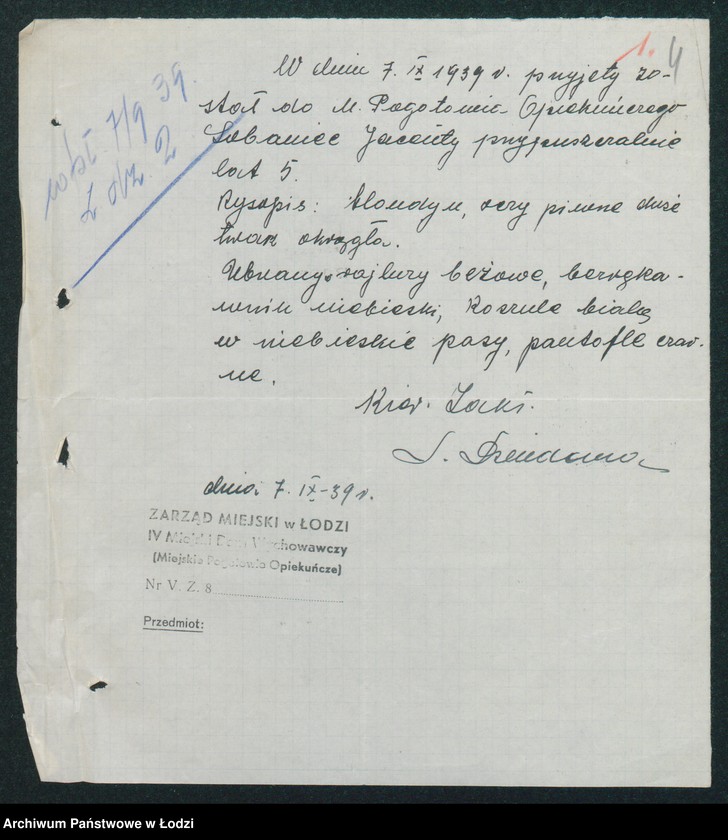 1. 4
W dniu 7. IX 1939 r. przyjęty zo-
stał do M. Pogotowia Opiekuńczego
Jacenty przypuszczalnie
lat 5.
Rysopis: blondyn, oczy piwne duże
twarz okrągła.
Ubrany: rajtuzy beżowe, bezręka-
wnik niebieski, koszule białą
w niebieskie pasy, pantofle czar-
ne.
Kier. Zakł.
dnia 7. IX-39 r.
7/9 39.
2
ZARZĄD MIEJSKI w ŁODZI
IV Miejski Dom Wychowawczy
(Miejskie Pogotowie Opiekuńcze)
Nr V. Z. 8
Przedmiot:
Archiwum Państwowe w Łodzi